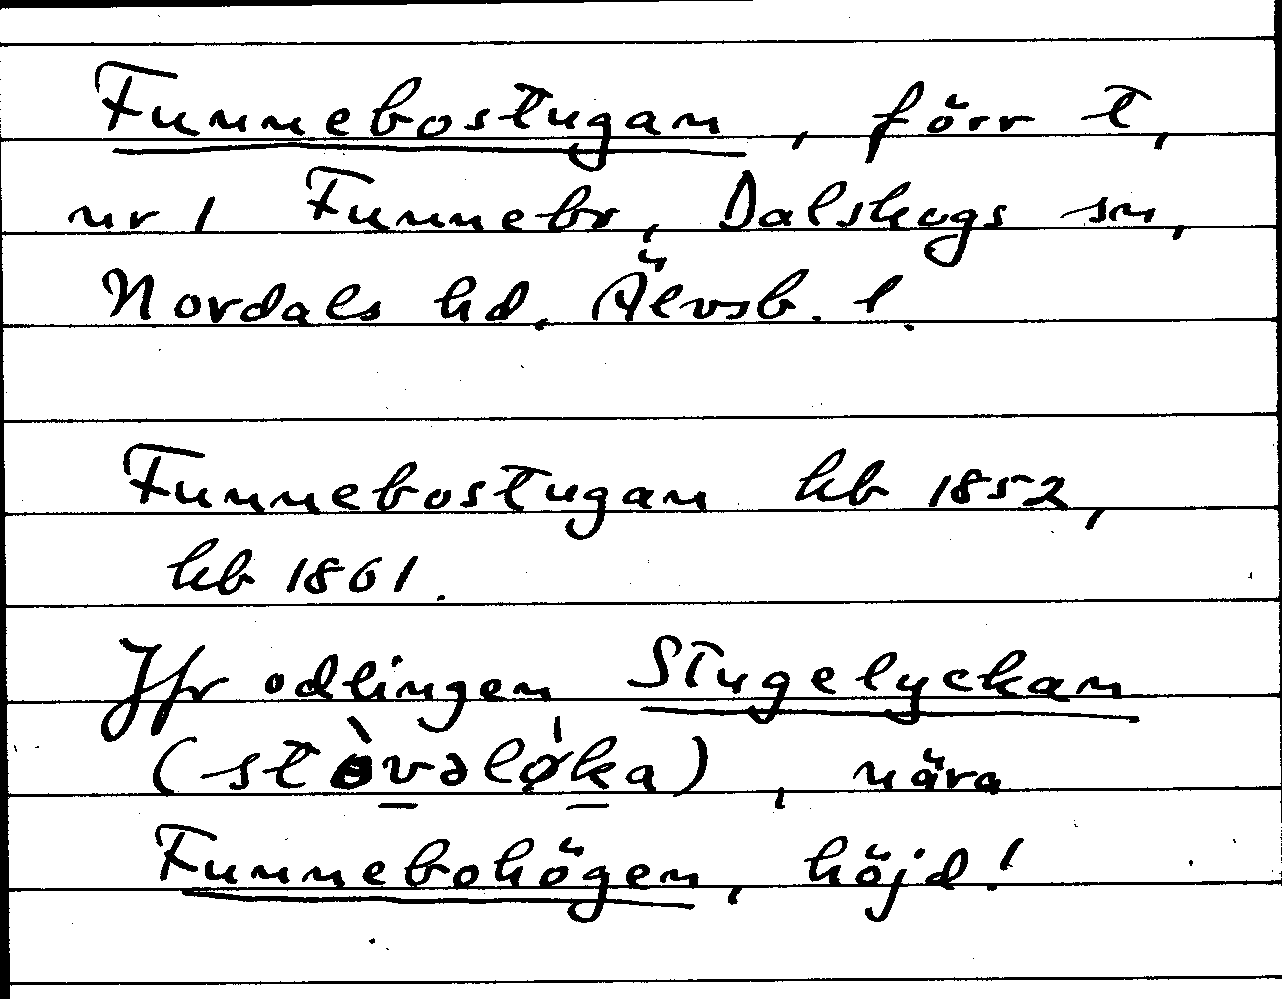 Funnebostugan, förr t,
nr 1 Funnebo, Dalskogs sn,
Nordals hd. Älvsb. l.
Funnebostugan hb 1852,
hb 1861.
Jfr odlingen Stugelyckan
(stòvəlø̀ka), nära
Funnebohögen, höjd!